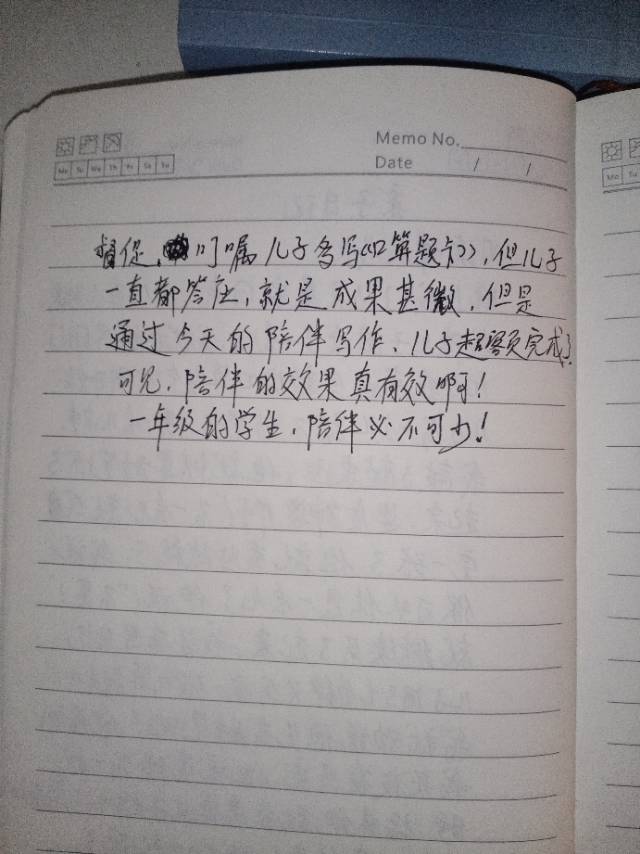 Memo No.
Mo Tu We Th Fr Sa Su
Date / /
督促、叮嘱儿子多写《口算题卡》,但儿子
一直都答应,就是成果甚微,但是
通过今天的陪伴写作、儿子超额完成了
可见,陪伴的效果真有效啊!
一年级的学生,陪伴必不可少!
Mo Tu